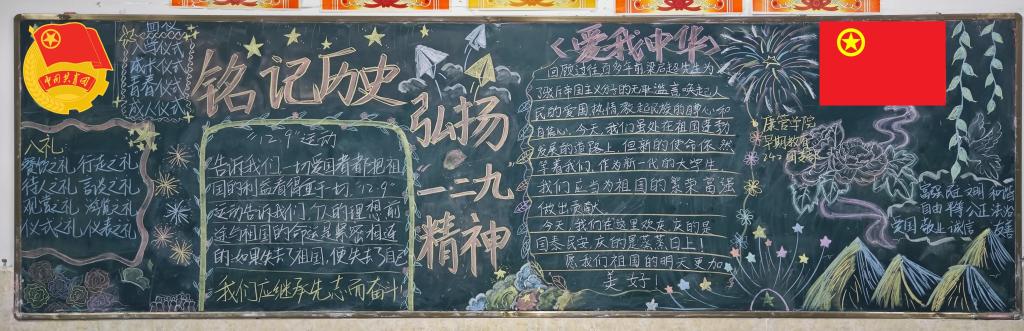 中国共青团
四仪
入学仪式
成长仪式
青春仪式
成人仪式
八礼:
餐饮之礼 行走之礼
待人之礼 言谈之礼
观赏之礼 游览之礼
仪式之礼 仪表之礼
铭记历史
弘扬
"一二九"
精神
"12.9"运动
告诉我们,一切爱国者都把祖
国的利益看得重于一切,"12.9"
运动告诉我们,个人的理想前
途与祖国的命运是紧密相连
的.如果失去了祖国,便失去了自己
我们应继承先志而奋斗
《爱我中华》
回顾过往百多年前梁启超先生为
民的爱国热情激起民族的自尊心和
自信心.今天,我们虽处在祖国蓬勃
发展的道路上,但新的使命依然
等着我们.作为新一代的大学生
我们应当为祖国的繁荣富强
做出贡献
今天,我们在这里欢庆,庆的是
国泰民安,庆的是蒸蒸日上!
愿我们祖国的明天更加
美好!
康管学院
早期教育
富强 民主 文明 和谐
自由 平等 公正 法治
爱国 敬业 诚信 友善